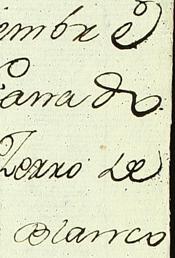 embre
Parrado
Zerro de
Blanco